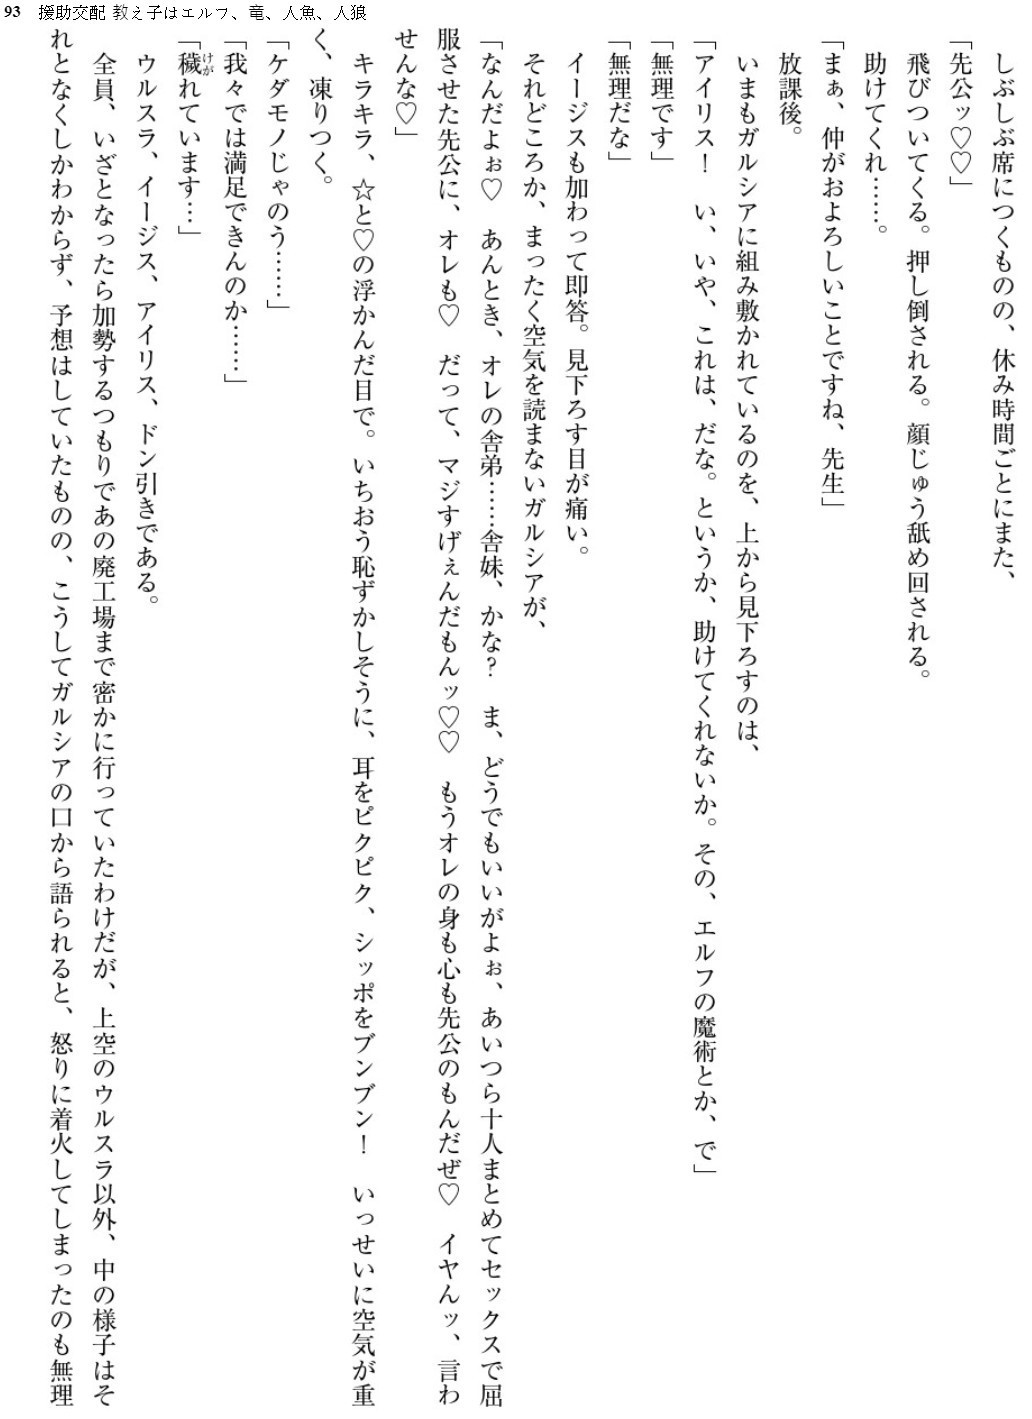 93 援助交配 教え子はエルフ、竜、人魚、人狼
しぶしぶ席につくものの、休み時間ごとにまた、
「先公ッ♡♡」
飛びついてくる。押し倒される。顔じゅう舐め回される。
助けてくれ……。
「まぁ、仲がおよろしいことですね、先生」
放課後。
いまもガルシアに組み敷かれているのを、上から見下ろすのは、
「アイリス！　い、いや、これは、だな。というか、助けてくれないか。その、エルフの魔術とか、で」
「無理です」
「無理だな」
イージスも加わって即答。見下ろす目が痛い。
それどころか、まったく空気を読まないガルシアが、
「なんだよぉ♡　あんとき、オレの舎弟……舎妹、かな？　ま、どうでもいいがよぉ、あいつら十人まとめてセックスで屈
服させた先公に、オレも♡　だって、マジすげぇんだもんッ♡♡　もうオレの身も心も先公のもんだぜ♡　イヤんッ、言わ
せんな♡」
キラキラ、☆と♡の浮かんだ目で。いちおう恥ずかしそうに、耳をピクピク、シッポをブンブン！　いっせいに空気が重
く、凍りつく。
「ケダモノじゃのう……」
「我々では満足できんのか……」
「穢けがれています…」
ウルスラ、イージス、アイリス、ドン引きである。
全員、いざとなったら加勢するつもりであの廃工場まで密かに行っていたわけだが、上空のウルスラ以外、中の様子はそ
れとなくしかわからず、予想はしていたものの、こうしてガルシアの口から語られると、怒りに着火してしまったのも無理